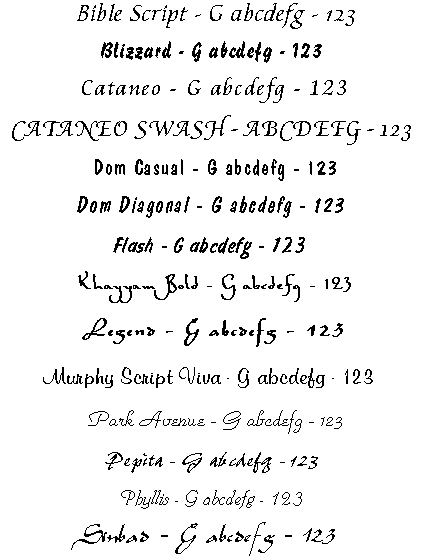 Bible Script - G abcdefg - 123
Blizzard - G abcdefg - 123
Cataneo - G abcdefg - 123
CATANEO SWASH - ABCDEFG - 123
Dom Casual - G abcdefg - 123
Dom Diagonal - G abcdefg - 123
Flash - G abcdefg - 123
Khayyam Bold - G abcdefg - 123
Legend - G abcdefg - 123
Murphy Script Viva - G abcdefg - 123
Park Avenue - G abcdefg - 123
Pepita - G abcdefg - 123
Phyllis - G abcdefg - 123
Sinbad - G abcdefg - 123